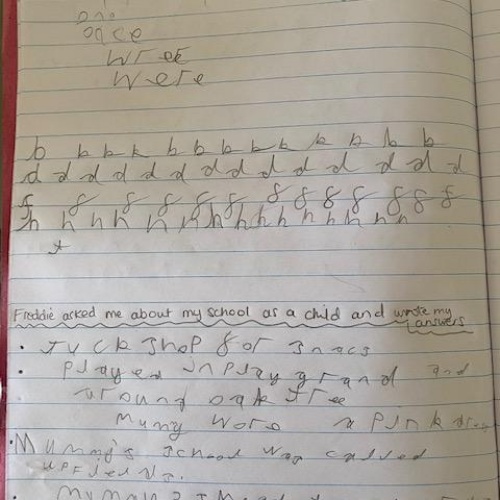 once
wree
were
b b b b b b b b b b b b b
d d d d d d d d d d d d d
f 8 8 8 8 8 8 8 8 8 8 8 8
h h h h h h h h h h h h h h
Freddie asked me about my school as a child and wrote my
answers
• tuck shop for snacs
• Played in play grand and
uround oak tree
mumy wore a pink dres
• Mummy's school was called